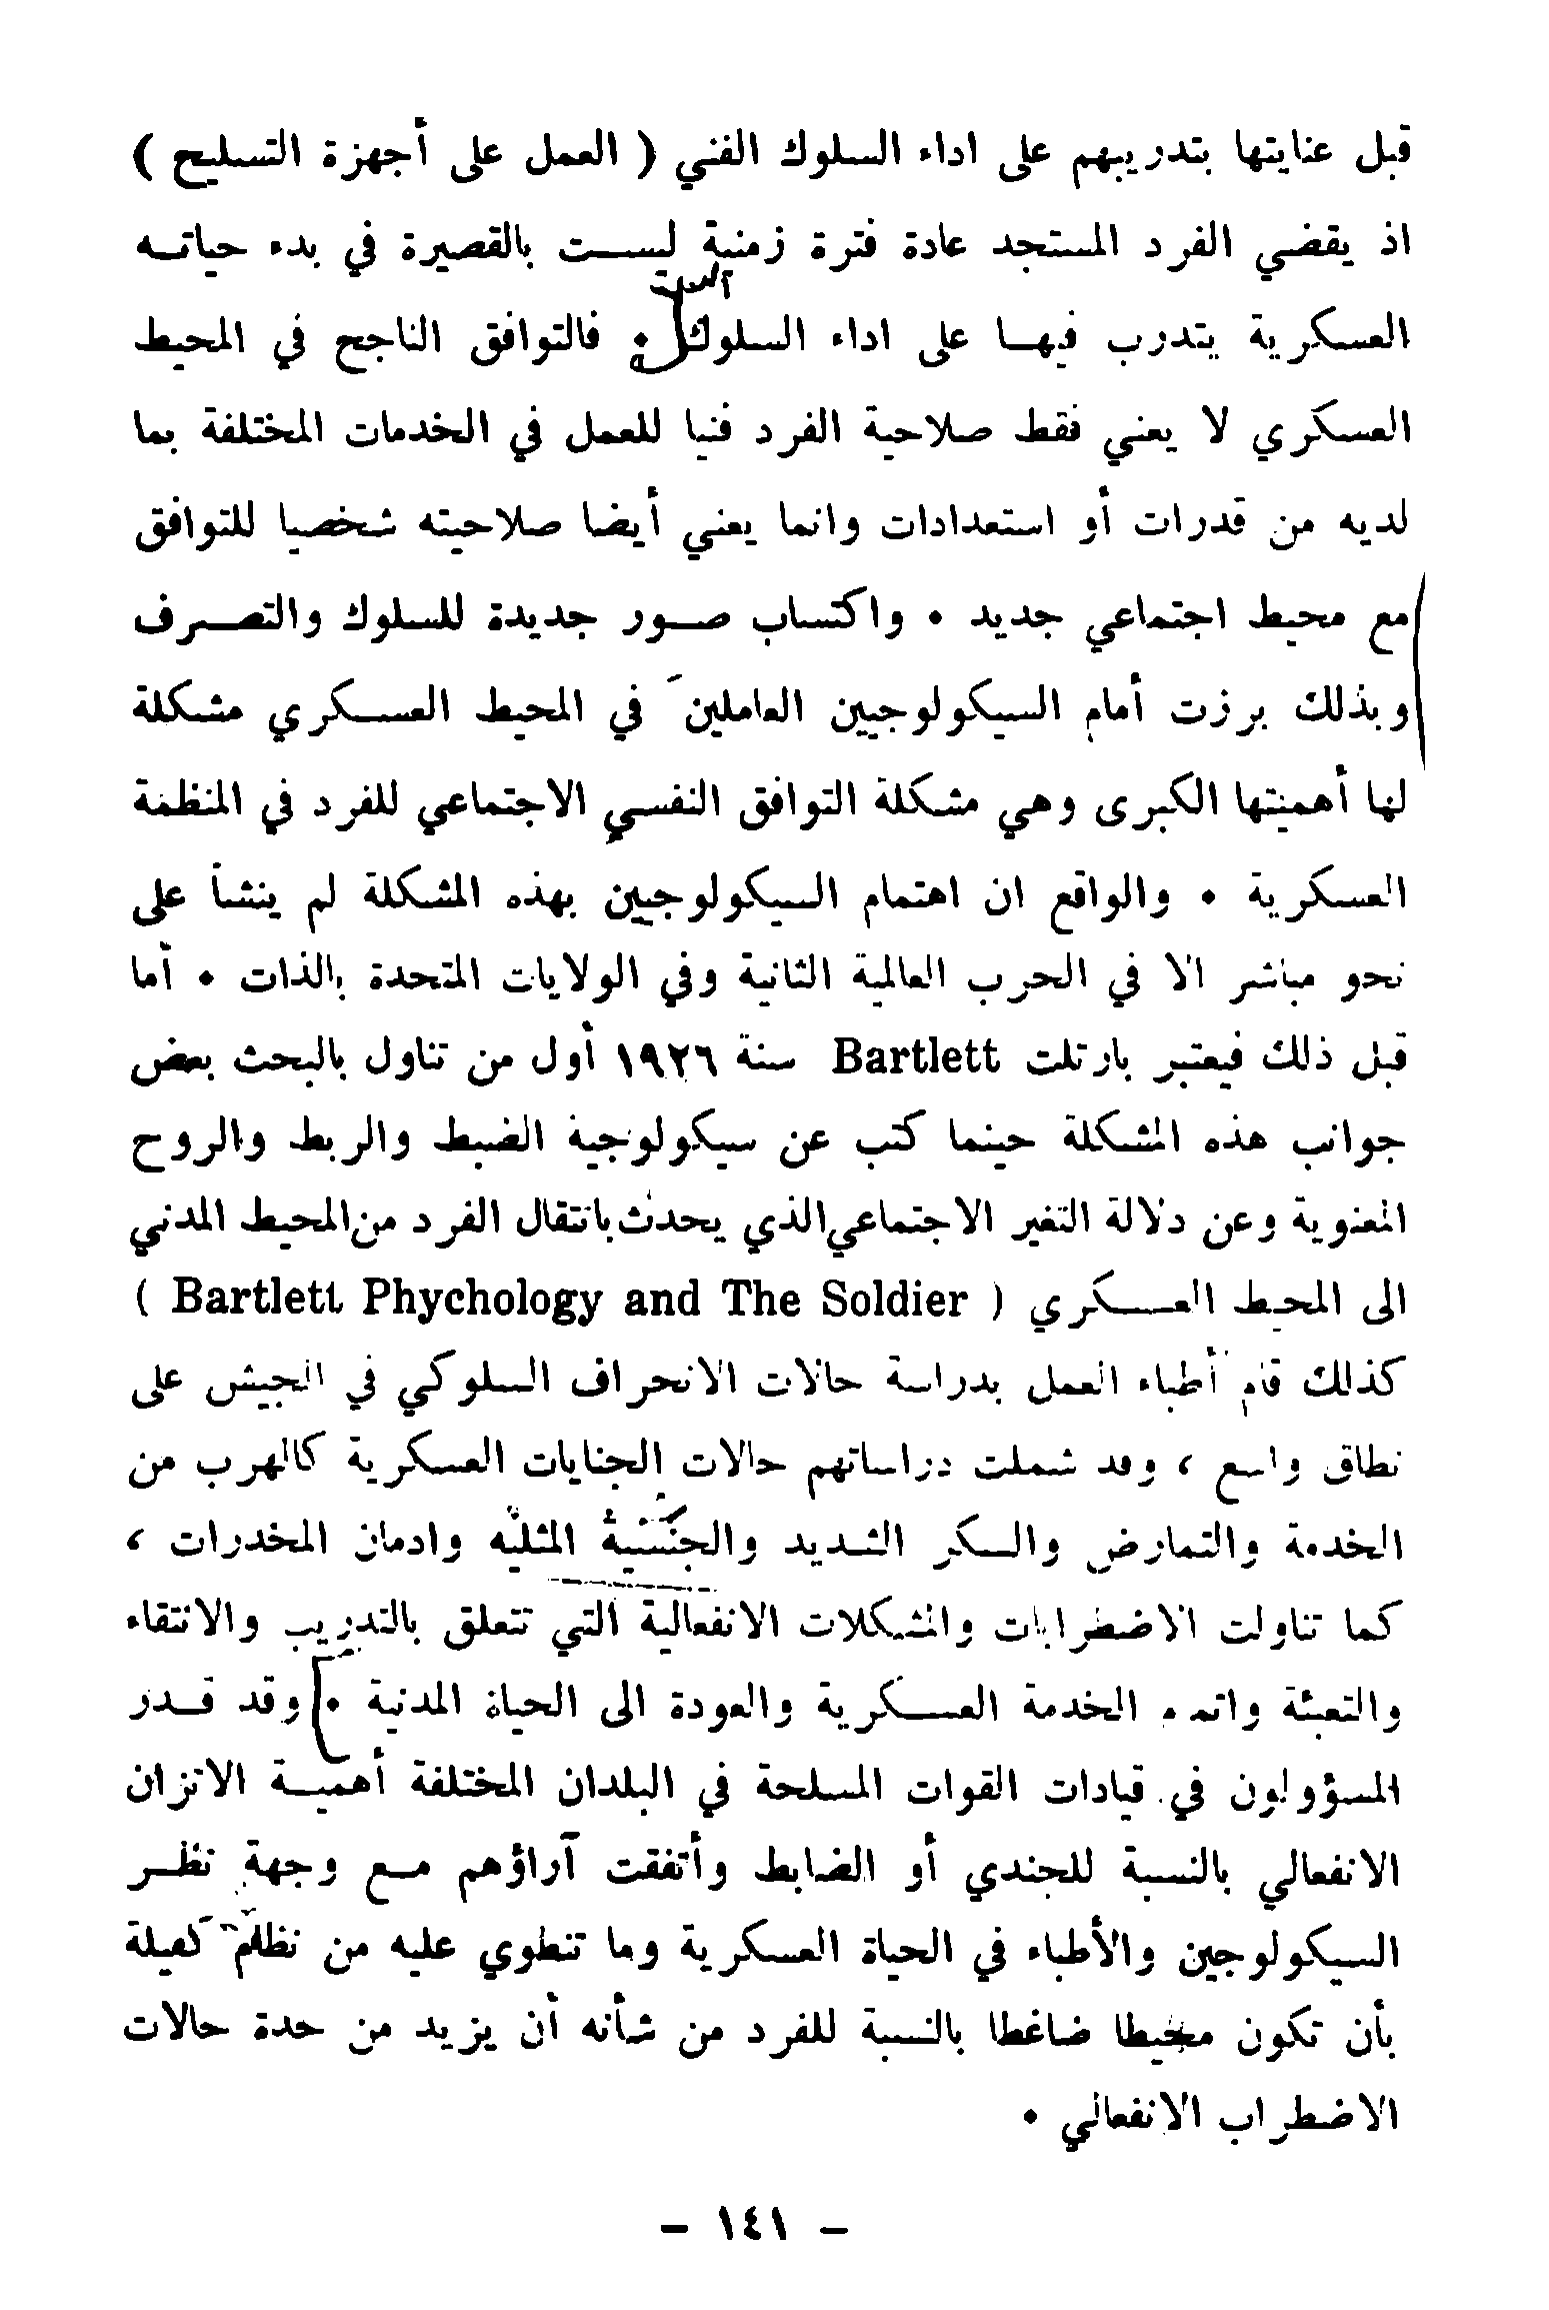 قبل عنايتها بتدريبهم على اداء السلوك الفني ( العمل على أجهزة التسليح )
اذ يقضي الفرد المستجد عادة فترة زمنية ليست بالقصيرة في بدء حياته
العسكرية يتدرب فيها على اداء السلوك . فالتوافق الناجح في المحيط
العسكري لا يعني فقط صلاحية الفرد فنيا للعمل في الخدمات المختلفة بما
لديه من قدرات أو استعدادات وانما يعني أيضا صلاحيته شخصيا للتوافق
مع محيط اجتماعي جديد . واكتساب صور جديدة للسلوك والتصرف
وبذلك برزت أمام السيكولوجيين العاملين في المحيط العسكري مشكلة
لها أهميتها الكبرى وهي مشكلة التوافق النفسي الاجتماعي للفرد في المنظمة
العسكرية . والواقع ان اهتمام السيكولوجيين بهذه المشكلة لم ينشأ على
نحو مباشر الا في الحرب العالمية الثانية وفي الولايات المتحدة بالذات . أما
قبل ذلك فيعتبر بارتلت Bartlett سنة ١٩٢٦ أول من تناول بالبحث بعض
جوانب هذه المشكلة حينما كتب عن سيكولوجية الضبط والربط والروح
المعنوية وعن دلالة التغير الاجتماعي الذي يحدث بانتقال الفرد من المحيط المدني
الى المحيط العسكري ( Bartlett Phychology and The Soldier )
كذلك قام أطباء العمل بدراسة حالات الانحراف السلوكي في الجيش على
نطاق واسع ، وقد شملت دراساتهم حالات الجنايات العسكرية كالهرب من
الخدمة والتمارض والسكر الشديد والجنسية المثليه وادمان المخدرات ،
كما تناولت الاضطرابات والمشكلات الانفعالية التي تتعلق بالتدريب والانتقاء
والتعبئة واتمء الخدمة العسكرية والعودة الى الحياة المدنية . وقد قدر
المسؤولون في قيادات القوات المسلحة في البلدان المختلفة أهمية الاتزان
الانفعالي بالنسبة للجندي أو الضابط وأتفقت آراؤهم مع وجهة نظر
السيكولوجين والأطباء في الحياة العسكرية وما تنطوي عليه من نظام كفيلة
بأن تكون محيطا ضاغطا بالنسبة للفرد من شأنه أن يزيد من حدة حالات
الاضطراب الانفعالي .
- ١٤١ -